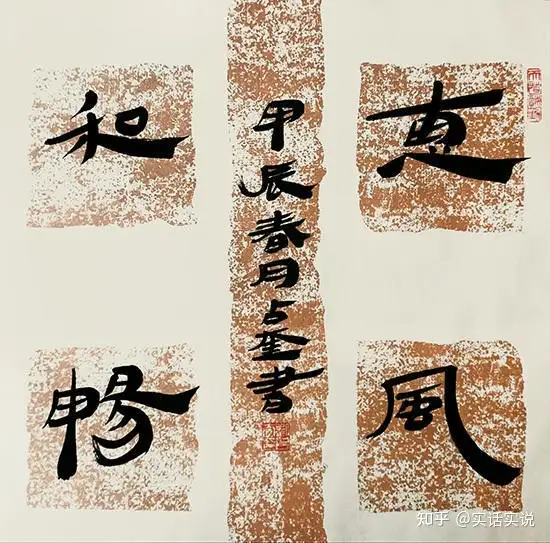 惠風
和暢
甲辰春月占奎書
知乎 @实话实说